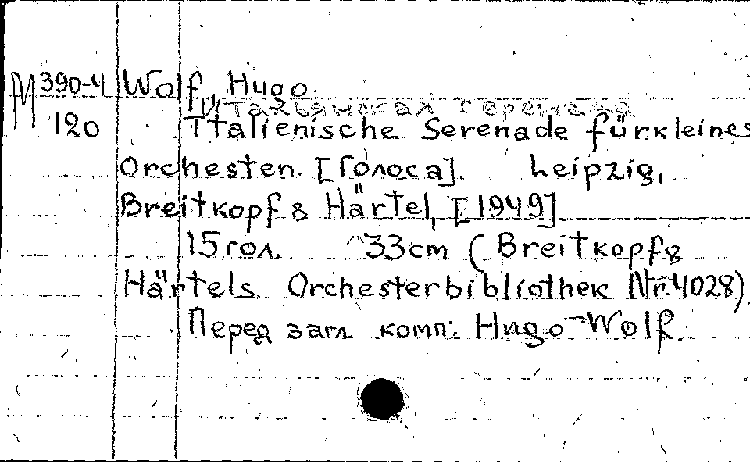 М 390-4 Wolf, Hugo
Итальянская серенада
120 Italienische Serenade für kleines
Orchesten. [Голоса]. Leipzig,
Breitkopf & Härtel, [1949]
15 гол. 33 cm (Breitkopf &
Härtels Orchesterbibliothek Nr. 4028)
Перед загл комп: Hugo Wolf.